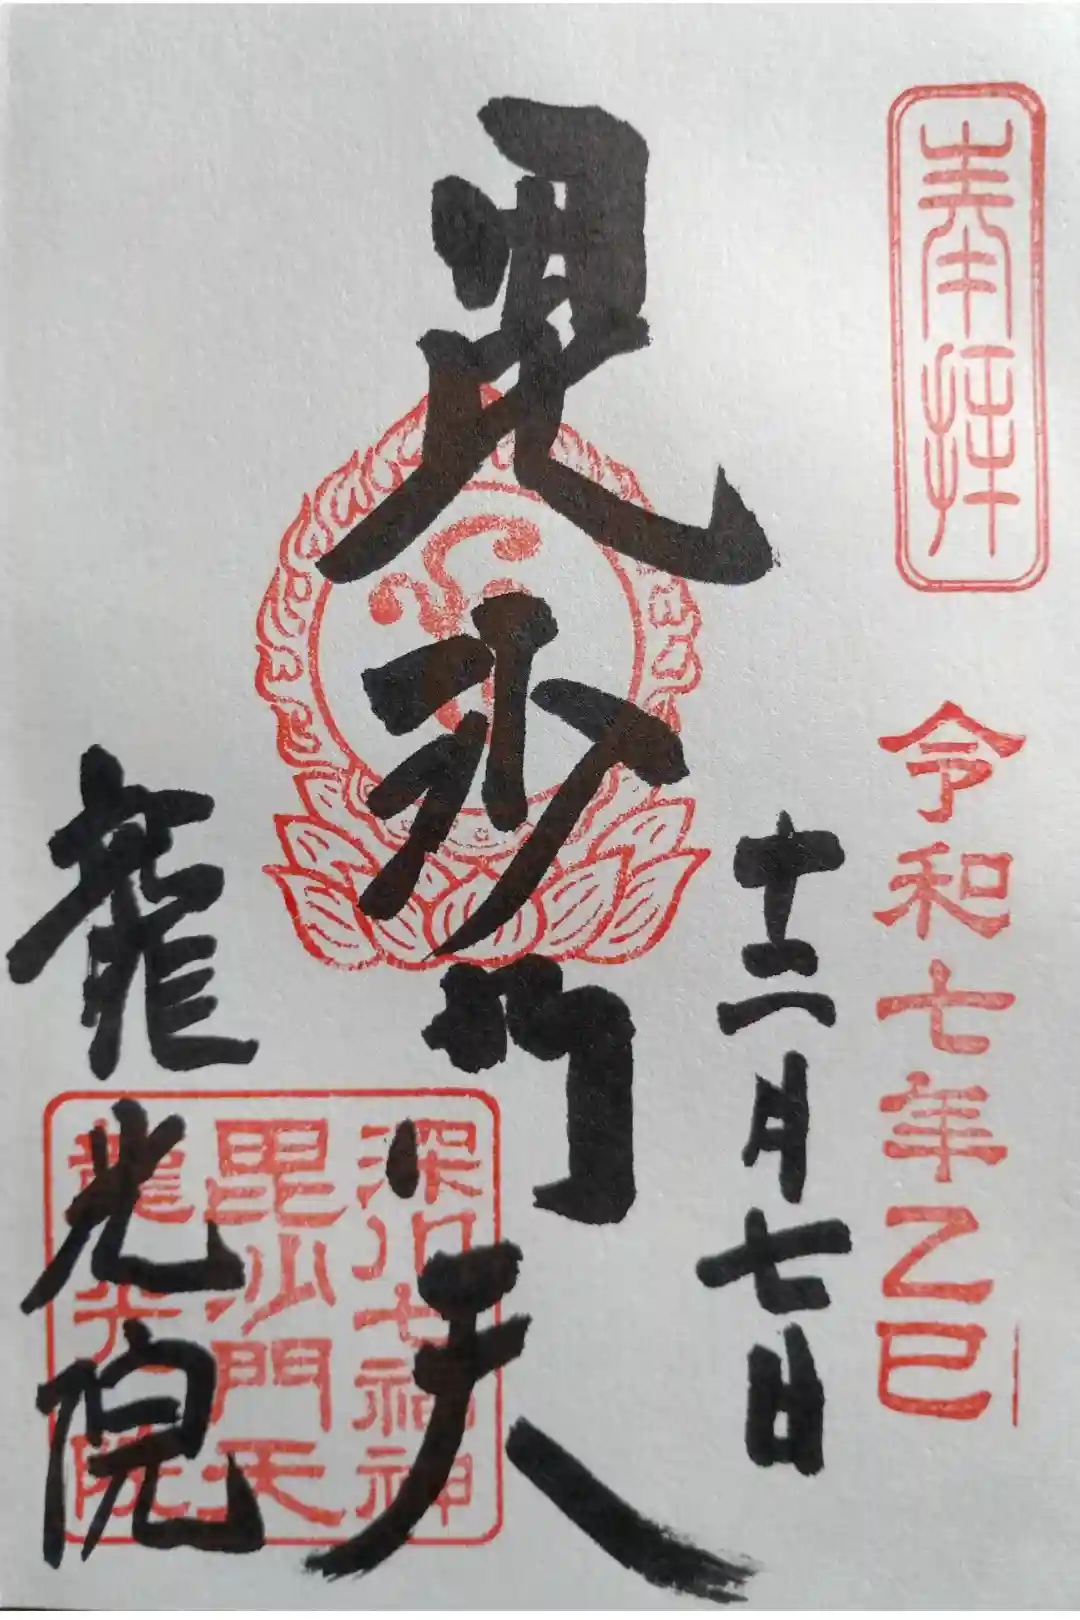 奉拝
令和七年乙巳
十二月七日
毘沙門天
龍光院
深川七福神
毘沙門天
龍光院